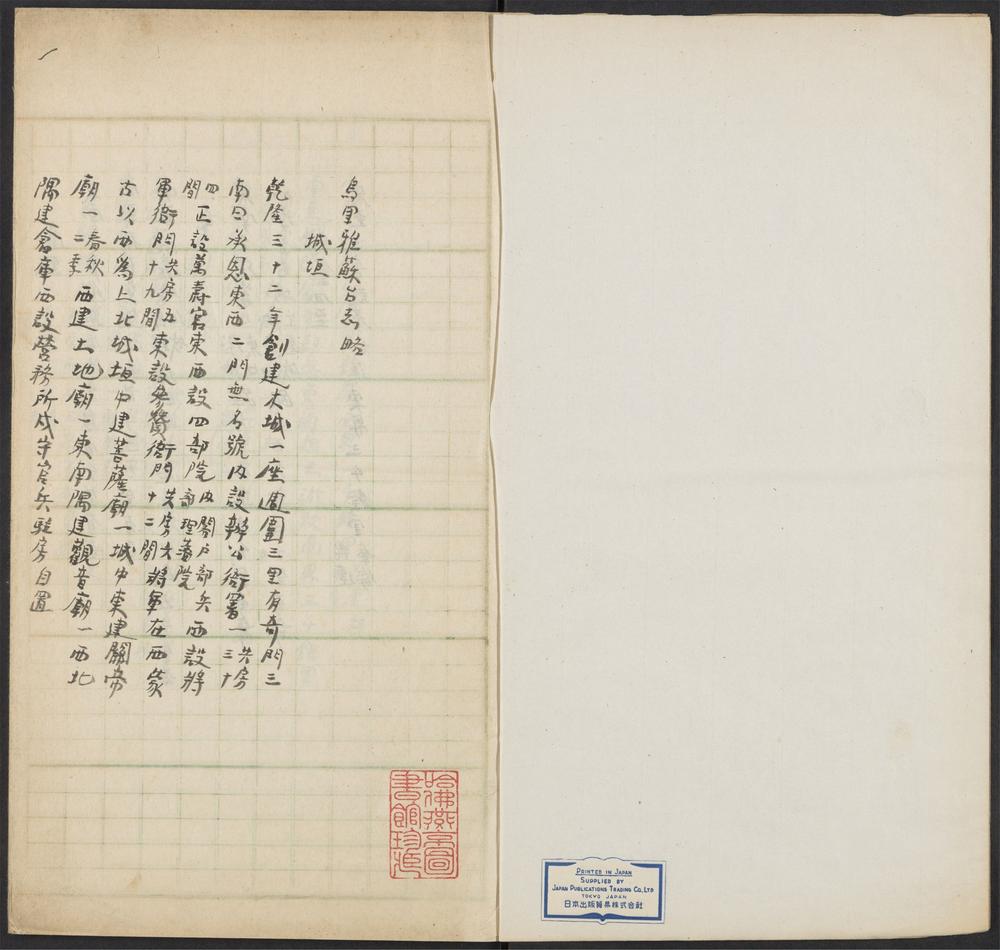 烏里雅蘇台志略
城垣
乾隆三十二年創建木城一座週圍三里有奇門三
南曰承恩東西二門無名號內設辦公衙署一共房三十
四間正設萬壽宮東西設四部院內閣戶部兵部理藩院西設將
軍衙門共房五十九間東設參贊衙門共房六十二間將軍在西蒙
古以西為上北城垣中建菩薩廟一城中東建關帝
廟一春秋二季西建土地廟一東南隅建觀音廟一西北
隅建倉庫西設營務所戍守官兵駐房自置
哈佛燕京圖
書館珍藏
PRINTED IN JAPAN
SUPPLIED BY
JAPAN PUBLICATIONS TRADING CO., LTD
TOKYO JAPAN
日本出版貿易株式会社